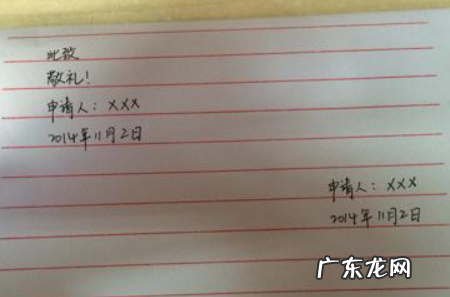 此致
敬礼!
申请人：XXX
2014年11月2日
申请人：XXX
2014年11月2日
广东龙网